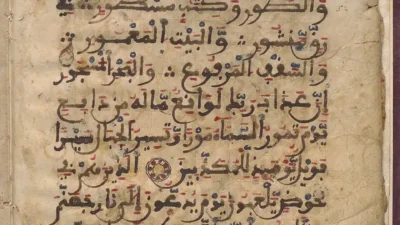 والطور وكتب مسطور في
رق منشور والبيت المعمور
والسقف المرفوع والبحر المسجور
إن عذاب ربك لواقع ما له من دافع
يوم تمور السماء مورا وتسير الجبال سيرا
فويل يومئذ للمكذبين الذين هم في
خوض يلعبون يوم يدعون إلى نار جهنم